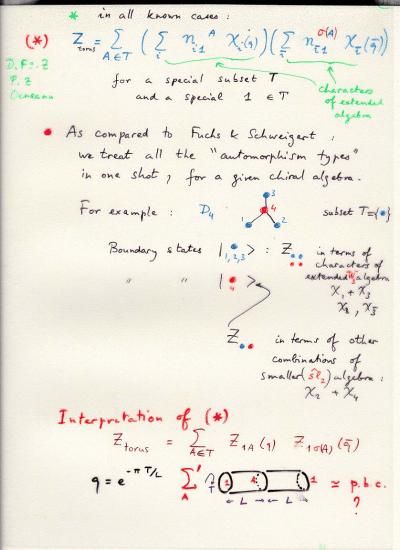 * in all known cases :
(*) Z_torus = Σ_{A∈T} ( Σ_i n_{i1}^A χ_i(q) ) ( Σ_ī n_{ī1}^{σ(A)} χ_ī(q̄) )
P. Z
Ocneanu
for a special subset T
and a special 1 ∈ T
characters
of extended
algebra
• As compared to Fuchs & Schweigert :
we treat all the "automorphism types"
in one shot, for a given chiral algebra.
For example : D₄
3
4
1 2
subset T={•}
Boundary states |•_{1,2,3}> : Z_{••} in terms of
characters of
extended algebra
χ₁ + χ₅
χ₃, χ₃̄
" " |•_4>
Z_{••} in terms of other
combinations of
smaller (ŝl₂) algebra :
χ₂ + χ₄
Interpretation of (*)
Z_torus = Σ_{A∈T} Z_{1A}(q) Z_{1σ(A)}(q̄)
q = e^{-πT/L} Σ'_A T 1 A 1 ≃ p.b.c.
← L → ← L → ?